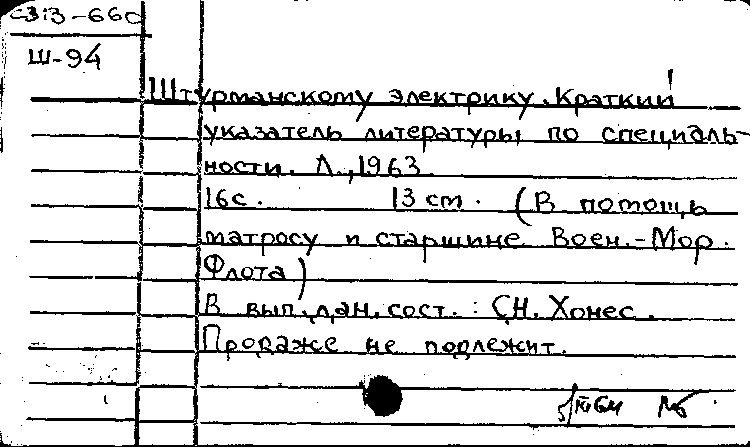 С313-660
Ш-94
Штурманскому электрику. Краткий
указатель литературы по специаль-
ности. Л., 1963.
16с. 13 см. (В помощь
матросу и старшине Воен.-Мор.
Флота)
В вып. дан. сост.: С.Н. Хонес.
Продаже не подлежит.